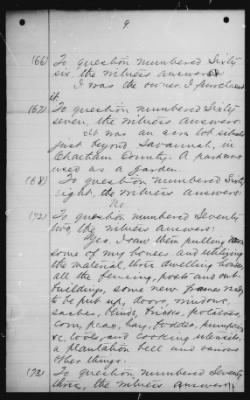 9
(66) To question numbered Sixty
six, the witness answers
I was the owner. I purchased
it.
(67) To question numbered Sixty
seven, the witness answers:
it was an acre lot
just beyond Savannah, in
Chatham County. A part was
used as a Garden.
(68) To question numbered Sixty
eight, the witness answers:
No.
(72) To question numbered Seventy
two, the witness answers:
Yes. I saw them pulling down
some of my houses and utilizing
the material, three dwelling houses
all the fencing, posts and out
buildings, some new frames ready
to be put up, doors, windows,
sashes, blinds, bricks, potatoes,
corn, peas, hay, fodder, pumpkins
&c. tools, and cooking utensils,
a plantation bell and various
other things.
(73) To question numbered Seventy
three, the witness answers: